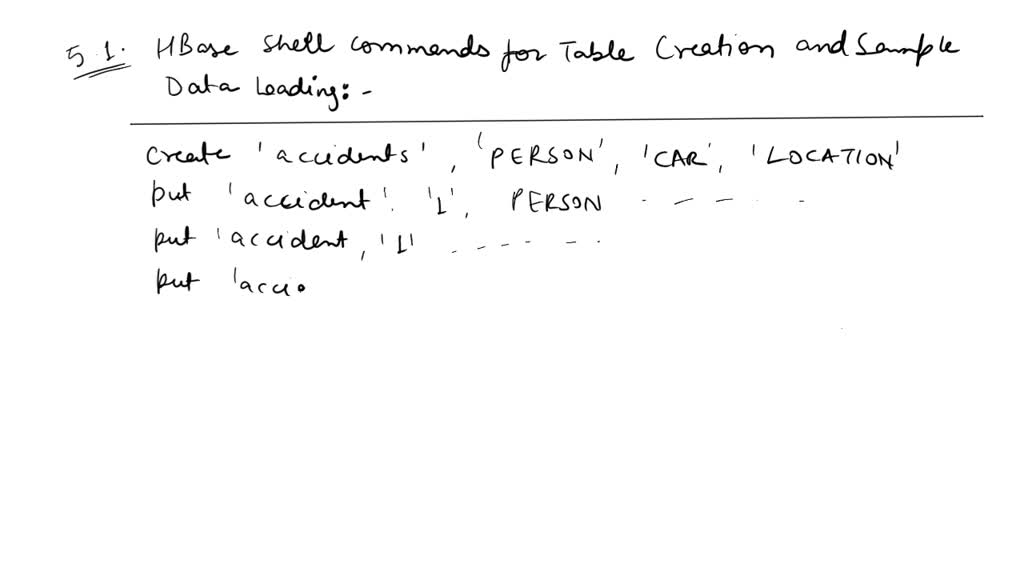 5.1. HBase Shell commands for Table Creation and Sample
Data Loading: -
create 'accidents', 'PERSON', 'CAR', 'LOCATION'
put 'accident'. '1', PERSON - - - - -
put 'accident, '1' - - - - - -
put 'acci